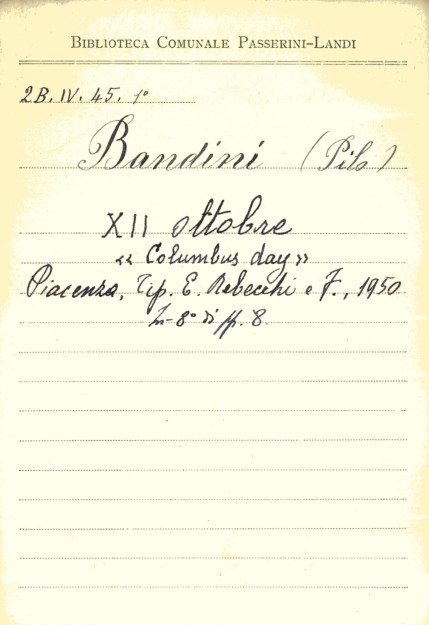 BIBLIOTECA COMUNALE PASSERINI-LANDI
2B. IV. 45. 1°
Bandini (Pilo)
XII ottobre
« Columbus day »
Piacenza, Tip. E. Rebecchi e F., 1950
In-8° di pp. 8.